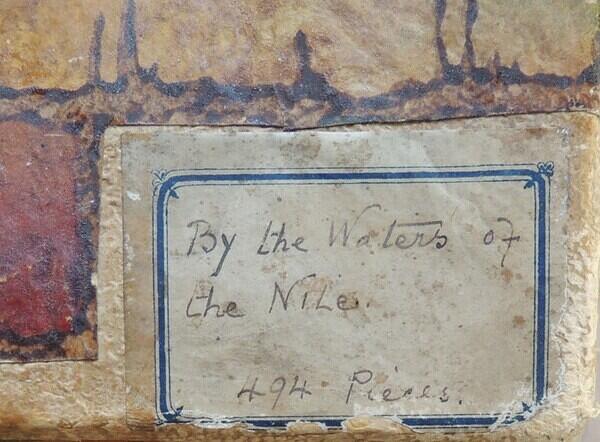 By the Waters of
the Nile.
494 Pieces.